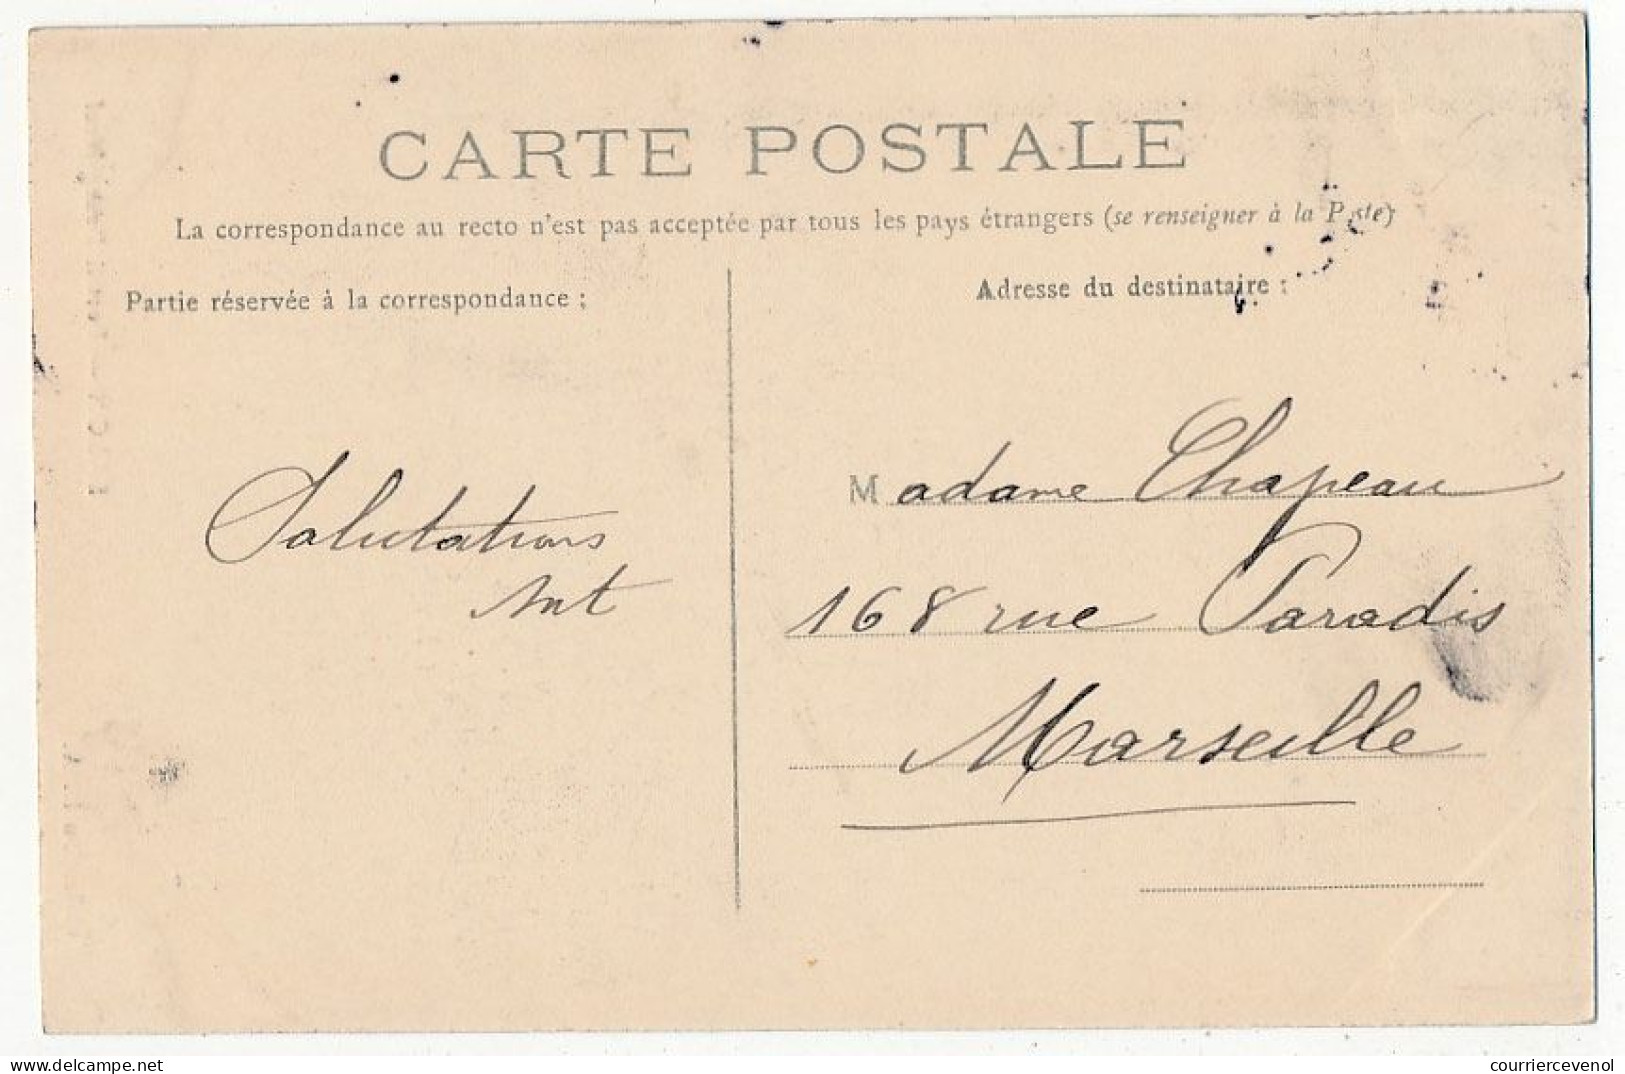 CARTE POSTALE
La correspondance au recto n'est pas acceptée par tous les pays étrangers (se renseigner à la Poste)
Partie réservée à la correspondance :
Adresse du destinataire :
Salutations
Madame Chapeau
168 rue Paradis
Marseille
courriercevenol